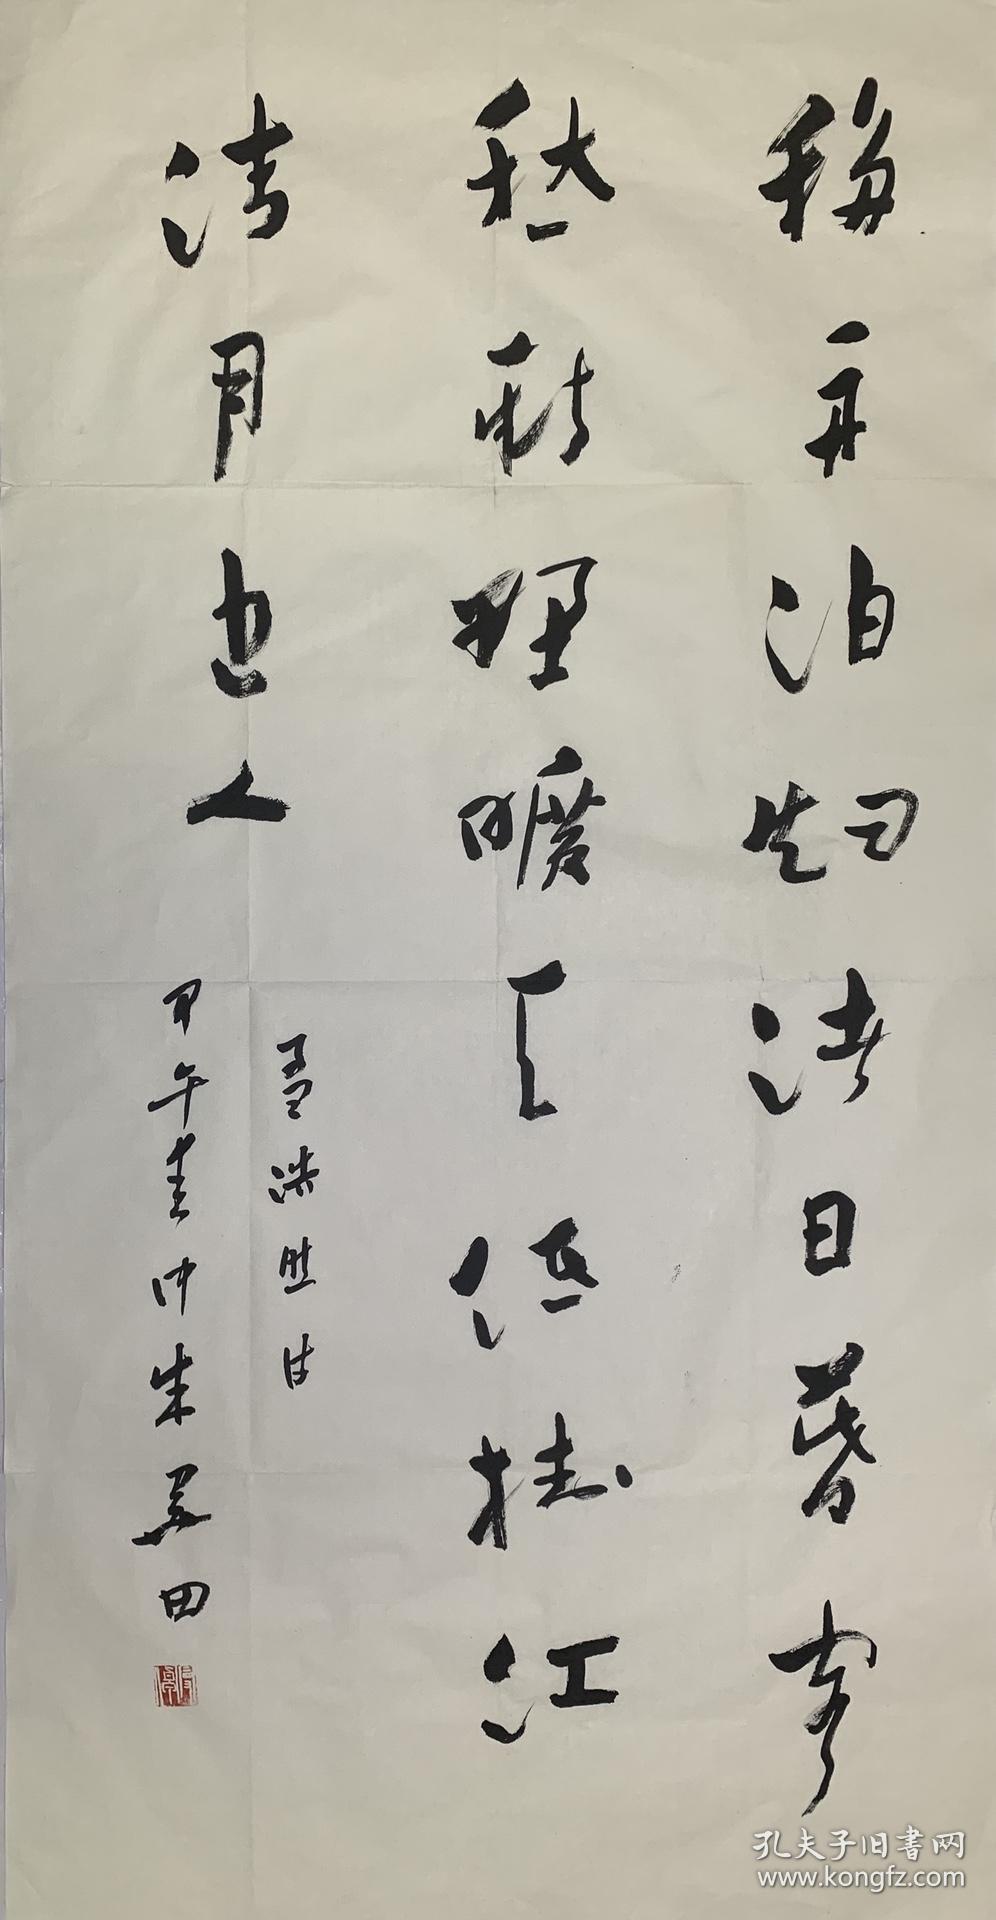 移舟泊烟渚日暮客
愁新野曠天低樹江
清月近人
孟浩然诗
甲午春仲朱关田
孔夫子旧书网
www.kongfz.com